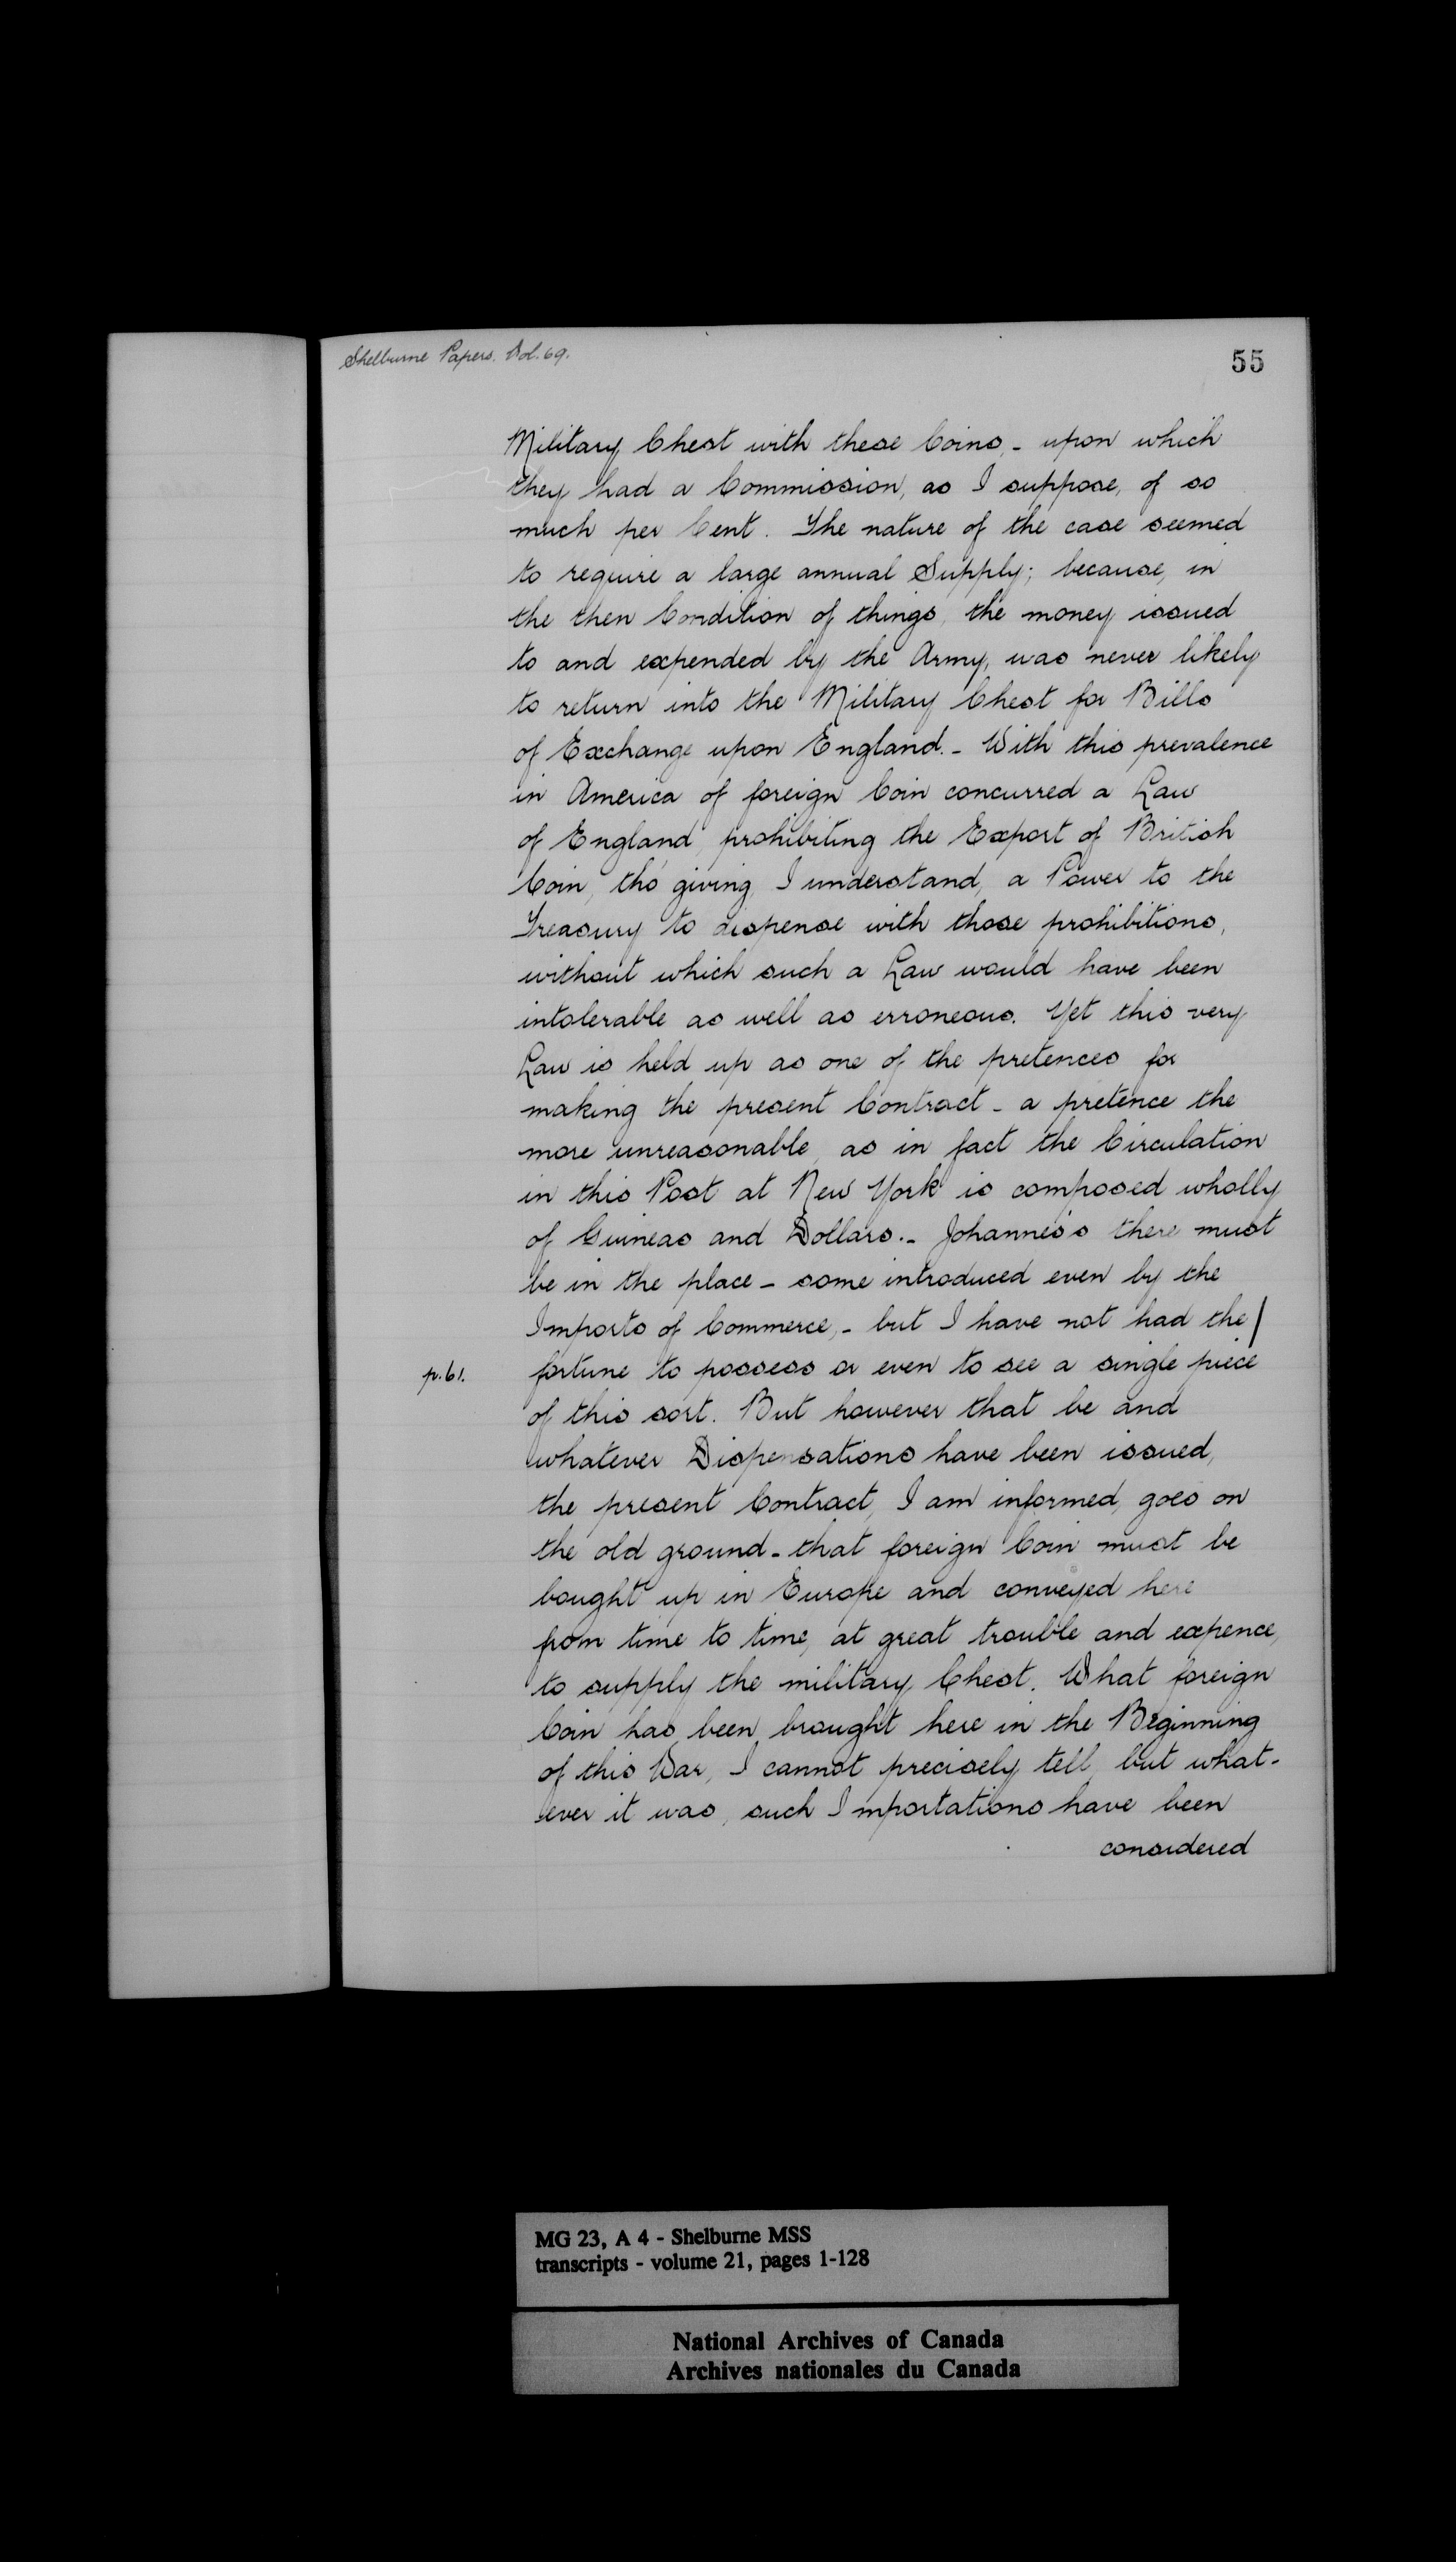 Shelburne Papers. Vol. 69.
55
Military Chest with these Coins, - upon which
they had a Commission, as I suppose, of so
much per Cent. The nature of the case seemed
to require a large annual Supply; because, in
the then Condition of things, the money issued
to and expended by the Army, was never likely
to return into the Military Chest for Bills
of Exchange upon England. - With this prevalence
in America of foreign Coin concurred a Law
of England, prohibiting the Export of British
Coin, tho' giving, I understand, a Power to the
Treasury to dispense with those prohibitions,
without which such a Law would have been
intolerable as well as erroneous. Yet this very
Law is held up as one of the pretences for
making the present Contract - a pretence the
more unreasonable, as in fact the Circulation
in this Post at New York is composed wholly
of Guineas and Dollars. - Johannes's there must
be in the place - some introduced even by the
Imports of Commerce, - but I have not had the/
p. 61.
fortune to possess or even to see a single piece
of this sort. But however that be and
whatever Dispensations have been issued,
the present Contract, I am informed, goes on
the old ground - that foreign Coin must be
bought up in Europe and conveyed here
from time to time, at great trouble and expence,
to supply the military Chest. What foreign
Coin has been brought here in the Beginning
of this War, I cannot precisely tell, but what-
ever it was, such Importations have been
considered
MG 23, A 4 - Shelburne MSS
transcripts - volume 21, pages 1-128
National Archives of Canada
Archives nationales du Canada